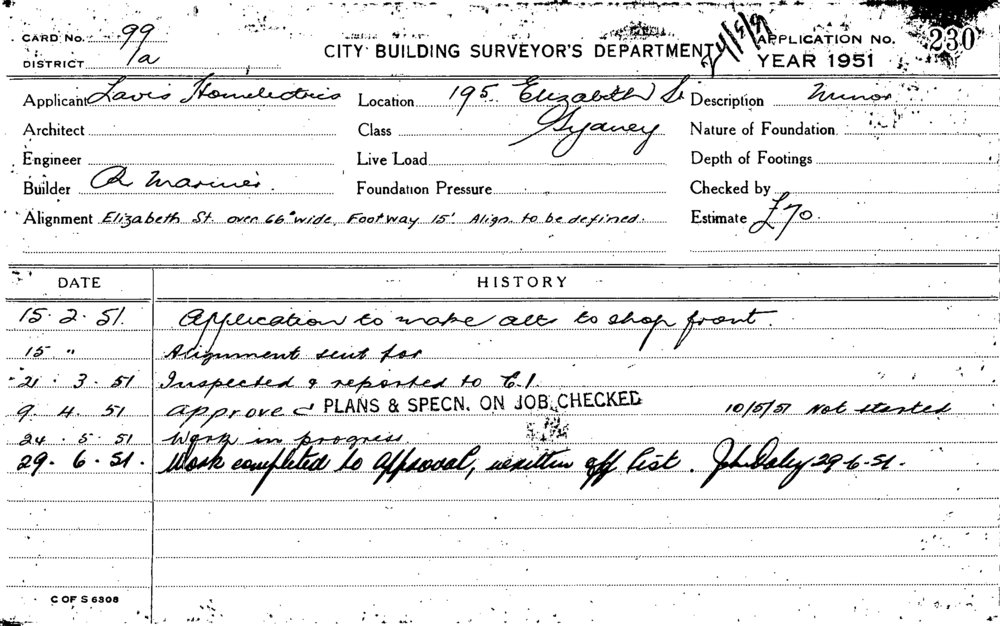 CARD No. 99
DISTRICT 1a
CITY BUILDING SURVEYOR'S DEPARTMENT
24/5/51
APPLICATION No. 230
YEAR 1951
Applicant Lavis Homelectrics Location 195 Elizabeth St Description Minor
Architect Class Sydney Nature of Foundation
Engineer Live Load Depth of Footings
Builder R Mariner Foundation Pressure Checked by
Alignment Elizabeth St. over 66' wide. Footway 15'. Align. to be defined. Estimate £70
DATE HISTORY
15. 2. 51. Application to make alts to shop front.
15 " Alignment sent for
21. 3. 51 Inspected & reported to C.I.
9. 4. 51 Approved PLANS & SPECN. ON JOB CHECKED 10/5/51 Not started
24. 5. 51 Work in progress
29. 6. 51. Work completed to approval, written off list. John Daley 29-6-51.
C OF S 6308